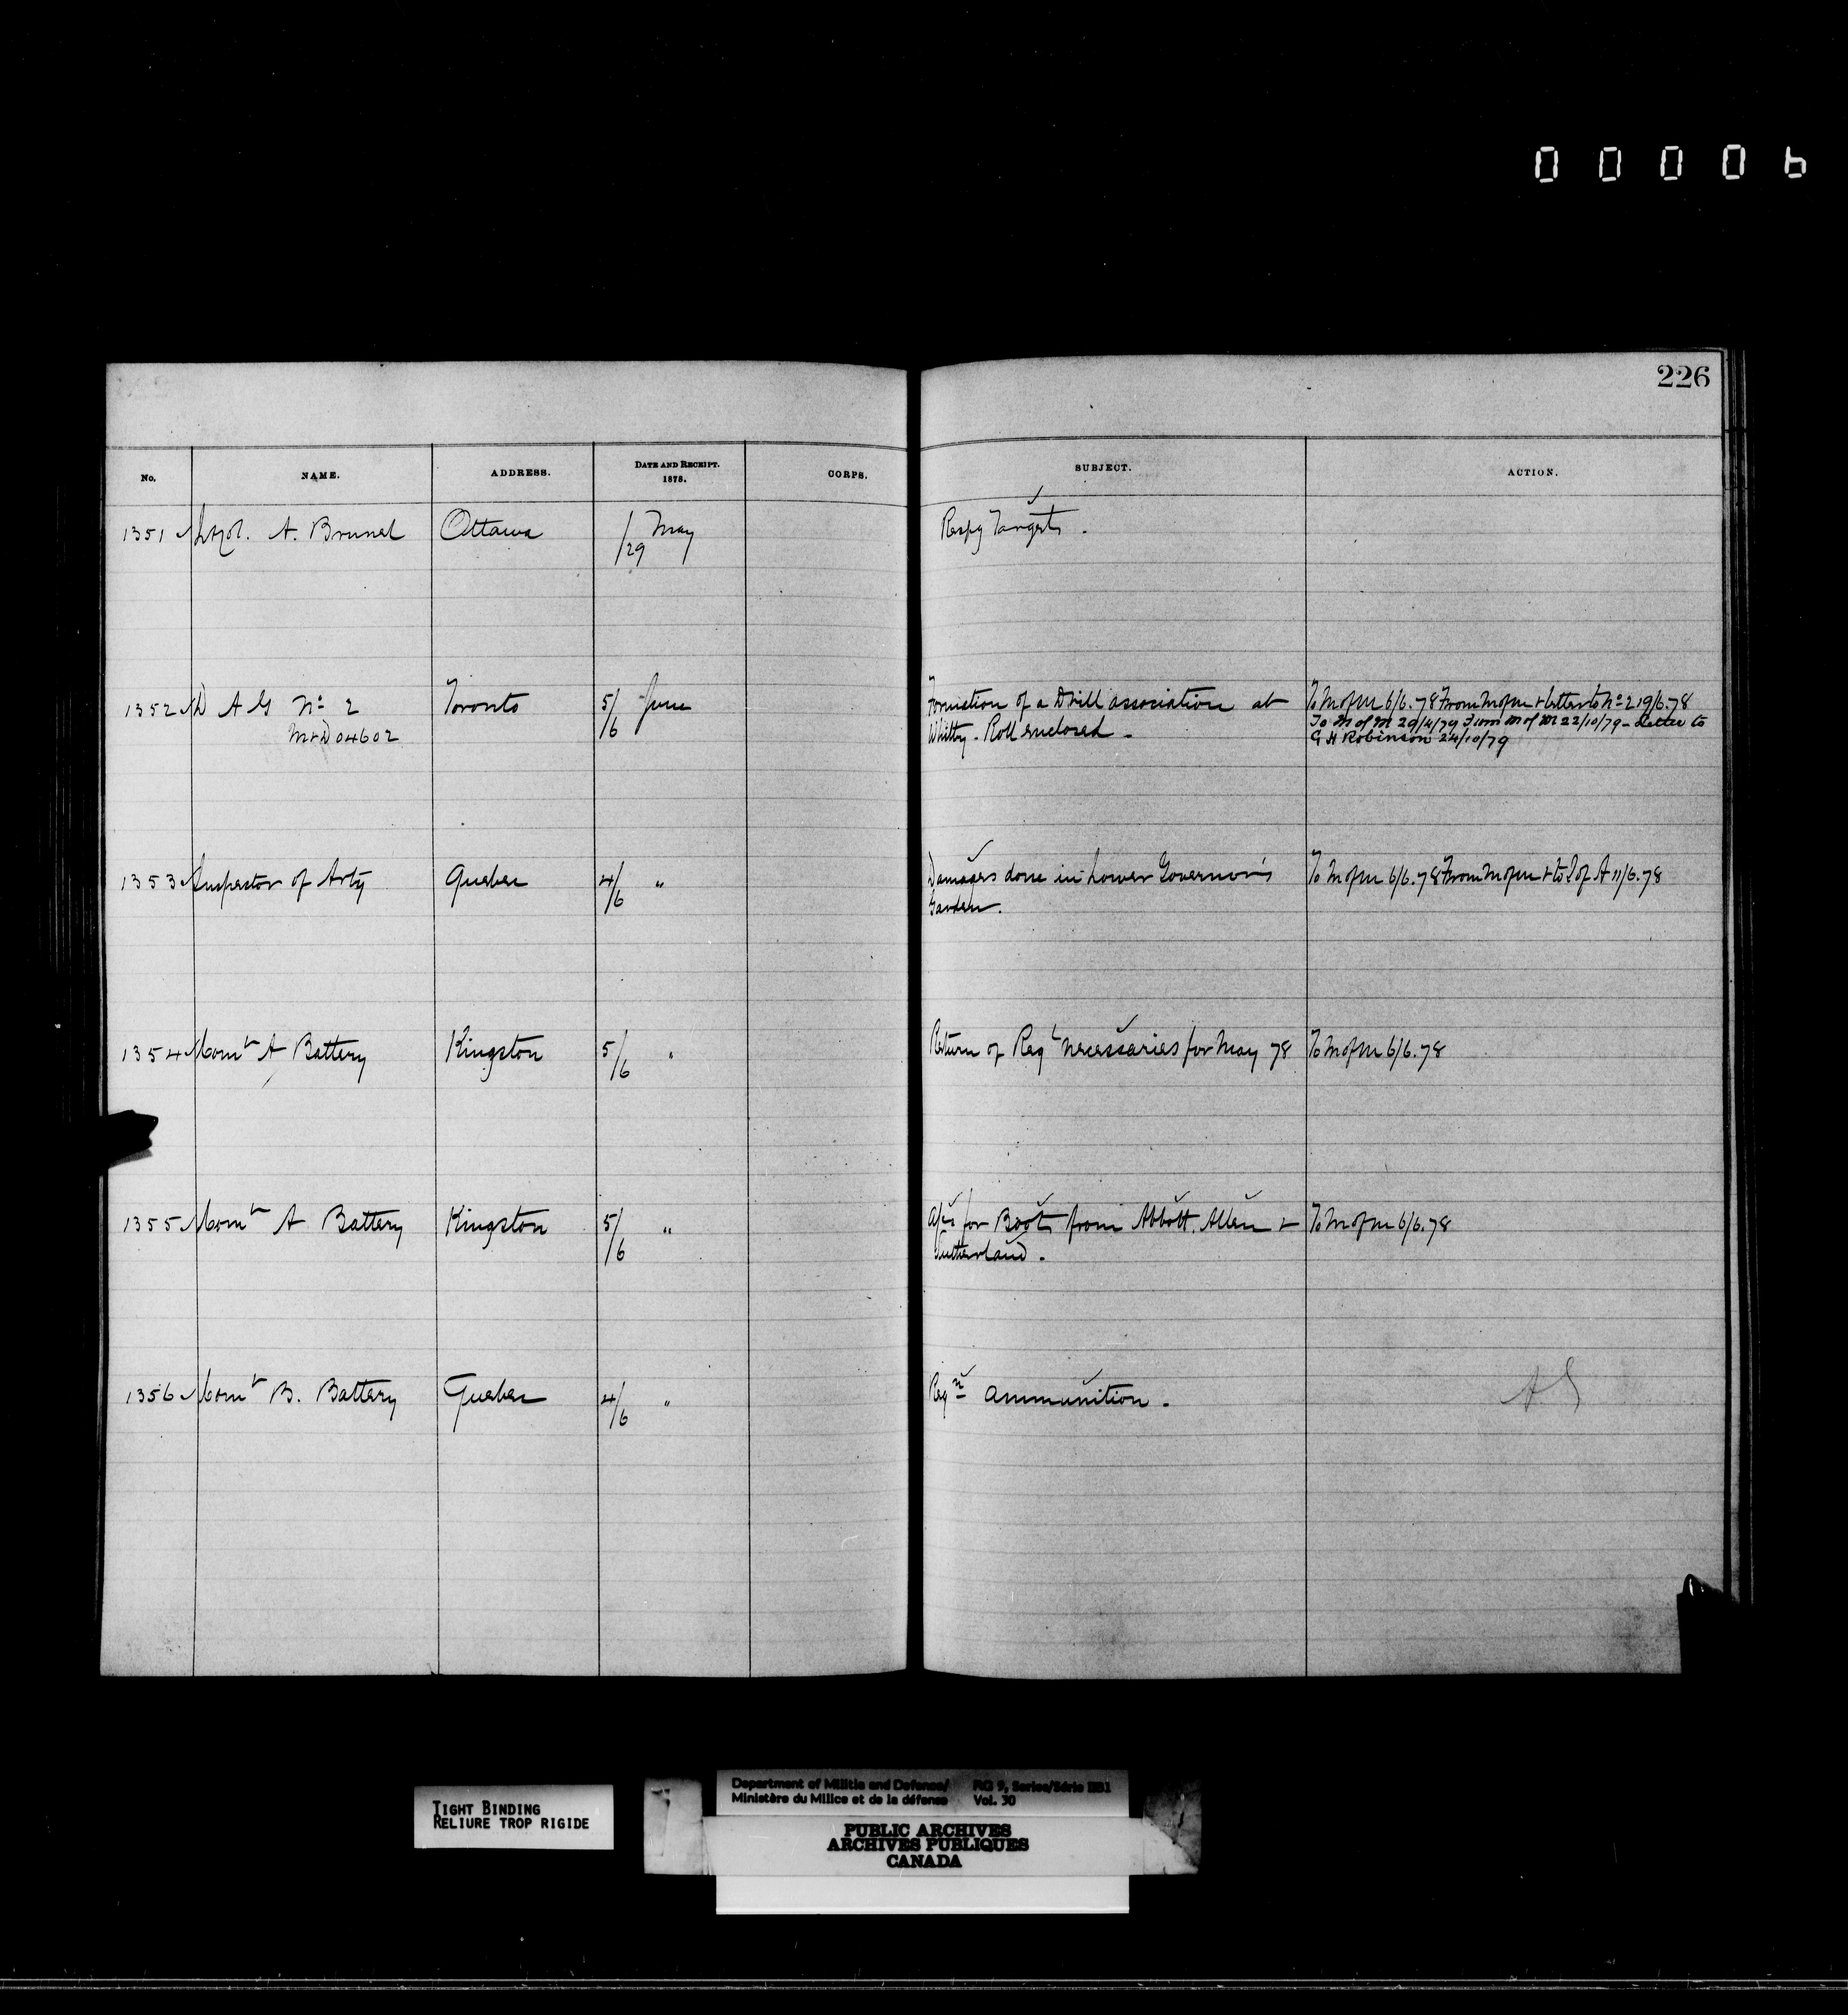 00006
226
No. NAME. ADDRESS. DATE AND RECEIPT. 1878. CORPS. SUBJECT. ACTION.
1351 Lt Col. A. Brunel Ottawa /29 May Respg Targets.
1352 D A G No 2 Toronto 5/6 June Formation of a Drill association at To M of M 6/6.78 From M of M + letter to No 2 19/6.78
M+D 04602 Whitby - Roll enclosed - To M of M 29/4/79 From M of M 22/10/79 - Letter to
G H Robinson 24/10/79
1353 Inspector of Arty Quebec 4/6 " Damages done in Lower Governor's To M of M 6/6.78 From M of M + to I of A 11/6.78
Garden.
1354 Comt A Battery Kingston 5/6 " Return of Regl necessaries for May 78 To M of M 6/6.78
1355 Comt A Battery Kingston 5/6 " a/cs for Boots from Abbott. Allen + To M of M 6/6.78
Sutherland.
1356 Comt B. Battery Quebec 4/6 " Reqn ammunition. A.G
TIGHT BINDING
RELIURE TROP RIGIDE
Department of Militia and Defence/ RG 9, Series/Série IIB1
Ministère du Milice et de la défense Vol. 30
PUBLIC ARCHIVES
ARCHIVES PUBLIQUES
CANADA